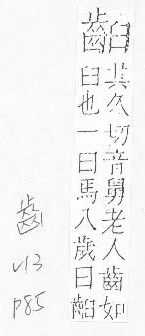 齨
其久切音舅老人齒如
臼也一曰馬八歲曰齨
齒
v13
p85